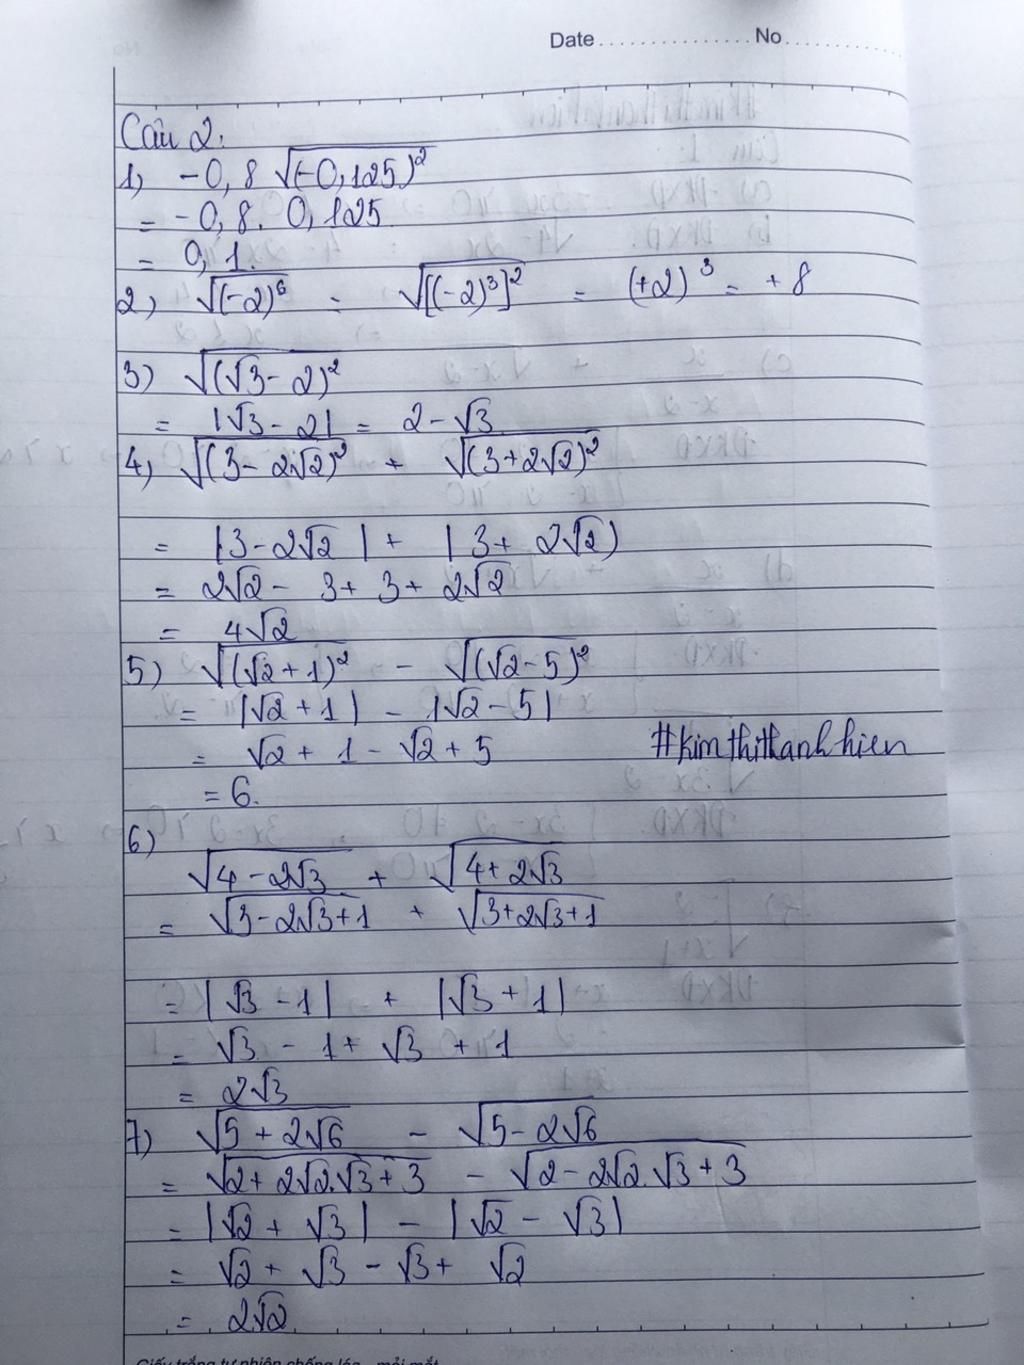 Date............... No...............
Câu 2:
1) -0,8 √(-0,125)²
= -0,8. 0,125
= 0,1.
2) √(-2)⁶ = √[(-2)³]² = (+2)³ = +8
3) √(√3 - 2)²
= |√3 - 2| = 2 - √3
4) √(3 - 2√2)² + √(3 + 2√2)²
= |3 - 2√2| + |3 + 2√2)
= 2√2 - 3 + 3 + 2√2
= 4√2
5) √(√2 + 1)² - √(√2 - 5)²
= |√2 + 1| - |√2 - 5|
= √2 + 1 - √2 + 5
#kimthithanhhien
= 6.
6)
√4 - 2√3 + √4 + 2√3
= √3 - 2√3 + 1 + √3 + 2√3 + 1
= |√3 - 1| + |√3 + 1|
= √3 - 1 + √3 + 1
= 2√3
7) √5 + 2√6 - √5 - 2√6
= √2 + 2√2.√3 + 3 - √2 - 2√2.√3 + 3
= |√2 + √3| - |√2 - √3|
= √2 + √3 - √3 + √2
= 2√2
Giấy trắng tự nhiên chống lóa - mỏi mắt